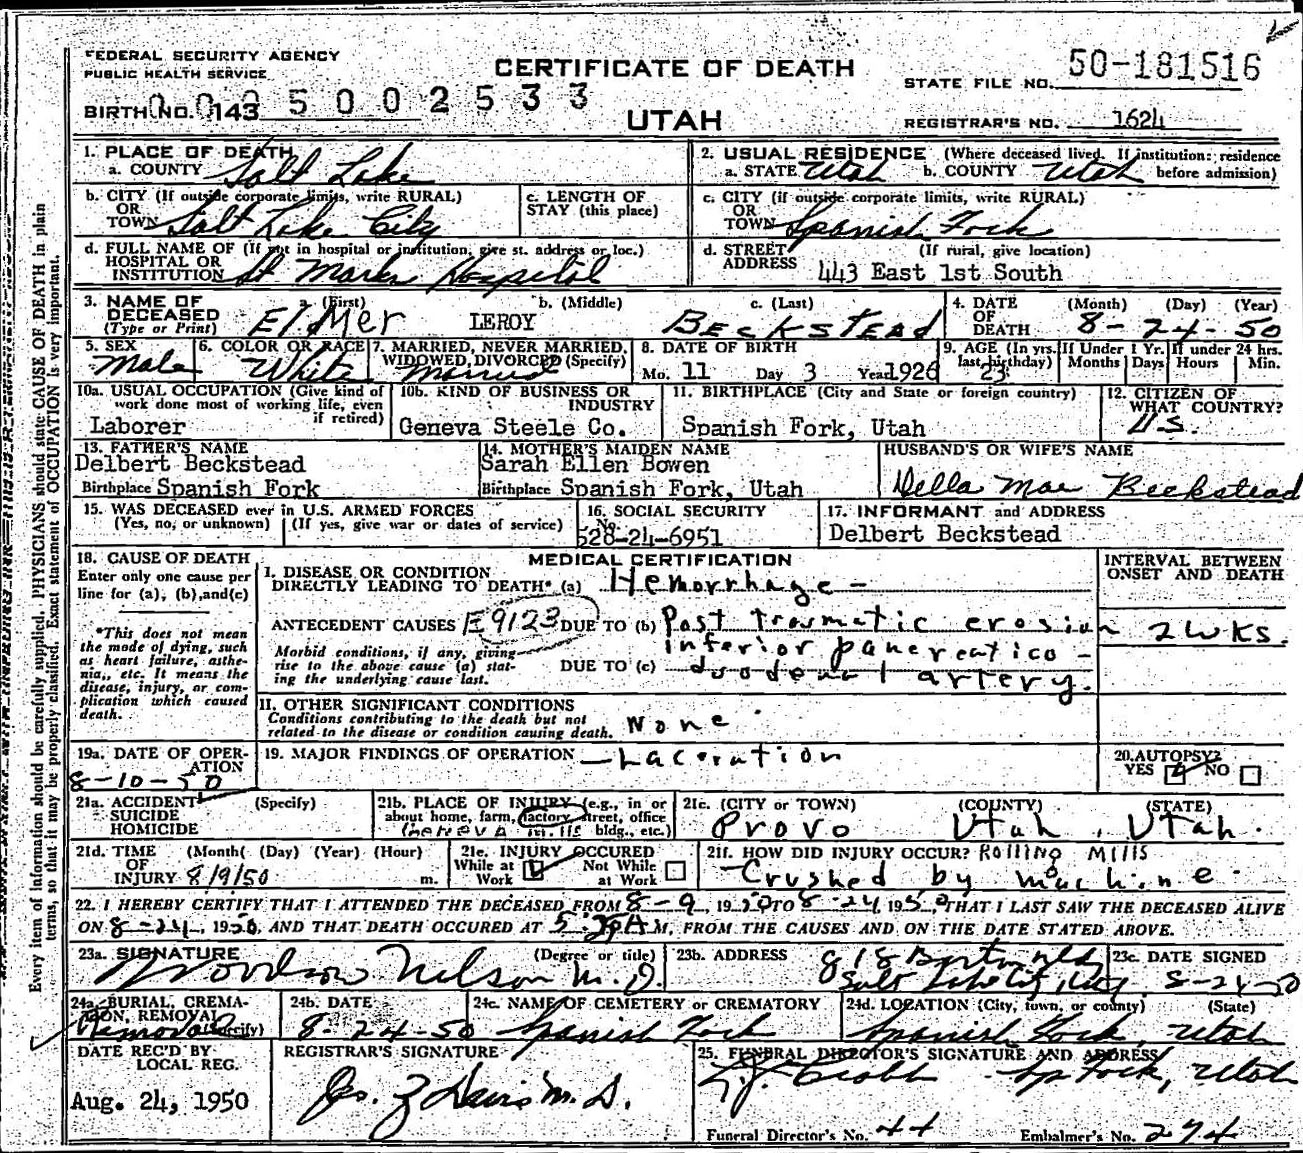 FEDERAL SECURITY AGENCY
PUBLIC HEALTH SERVICE
CERTIFICATE OF DEATH
STATE FILE NO. 50-181516
BIRTH NO. 143
005002533
UTAH
REGISTRAR'S NO. 1624
1. PLACE OF DEATH
a. COUNTY Salt Lake
2. USUAL RESIDENCE (Where deceased lived. If institution: residence before admission)
a. STATE Utah b. COUNTY Utah
b. CITY (If outside corporate limits, write RURAL)
OR
TOWN Salt Lake City
c. LENGTH OF
STAY (this place)
c. CITY (if outside corporate limits, write RURAL)
OR
TOWN Spanish Fork
d. FULL NAME OF (If not in hospital or institution, give st. address or loc.)
HOSPITAL OR
INSTITUTION St Marks Hospital
d. STREET (If rural, give location)
ADDRESS 443 East 1st South
3. NAME OF
DECEASED
(Type or Print)
a. (First) b. (Middle) c. (Last)
Elmer LEROY BECKSTEAD
4. DATE
OF
DEATH
(Month) (Day) (Year)
8-24-50
5. SEX
Male
6. COLOR OR RACE
White
7. MARRIED, NEVER MARRIED,
WIDOWED, DIVORCED (Specify)
Married
8. DATE OF BIRTH
Mo. 11 Day 3 Year 1926
9. AGE (In yrs.
last birthday)
23
If Under 1 Yr.
Months Days
If under 24 hrs.
Hours Min.
10a. USUAL OCCUPATION (Give kind of
work done most of working life, even
if retired)
Laborer
10b. KIND OF BUSINESS OR
INDUSTRY
Geneva Steele Co.
11. BIRTHPLACE (City and State or foreign country)
Spanish Fork, Utah
12. CITIZEN OF
WHAT COUNTRY?
U.S.
13. FATHER'S NAME
Delbert Beckstead
Birthplace Spanish Fork
14. MOTHER'S MAIDEN NAME
Sarah Ellen Bowen
Birthplace Spanish Fork, Utah
HUSBAND'S OR WIFE'S NAME
Della Mae Beckstead
15. WAS DECEASED ever in U.S. ARMED FORCES
(Yes, no, or unknown) (If yes, give war or dates of service)
16. SOCIAL SECURITY
No.
528-24-6951
17. INFORMANT and ADDRESS
Delbert Beckstead
18. CAUSE OF DEATH
Enter only one cause per
line for (a), (b), and (c)
*This does not mean
the mode of dying, such
as heart failure, asthe-
nia, etc. It means the
disease, injury, or com-
plication which caused
death.
MEDICAL CERTIFICATION
I. DISEASE OR CONDITION
DIRECTLY LEADING TO DEATH* (a) Hemorrhage -
ANTECEDENT CAUSES E9123 DUE TO (b) Post traumatic erosion
Morbid conditions, if any, giving
rise to the above cause (a) stat-
ing the underlying cause last.
inferior pancreatico -
DUE TO (c) duodenal artery.
INTERVAL BETWEEN
ONSET AND DEATH
2 wks.
II. OTHER SIGNIFICANT CONDITIONS
Conditions contributing to the death but not
related to the disease or condition causing death.
None
19a. DATE OF OPER-
ATION
8-10-50
19. MAJOR FINDINGS OF OPERATION - Laceration
20. AUTOPSY?
YES NO
21a. ACCIDENT (Specify)
SUICIDE
HOMICIDE
21b. PLACE OF INJURY (e.g., in or
about home, farm, factory, street, office
bldg., etc.)
Geneva mills
21c. (CITY or TOWN) (COUNTY) (STATE)
Provo Utah, Utah.
21d. TIME
OF
INJURY
(Month) (Day) (Year) (Hour)
8/9/50 m.
21e. INJURY OCCURED
While at
Work
Not While
at Work
21f. HOW DID INJURY OCCUR? Rolling Mills
- Crushed by machine.
22. I HEREBY CERTIFY THAT I ATTENDED THE DECEASED FROM 8-9, 1950 TO 8-24, 1950, THAT I LAST SAW THE DECEASED ALIVE
ON 8-24, 1950, AND THAT DEATH OCCURED AT M, FROM THE CAUSES AND ON THE DATE STATED ABOVE.
23a. SIGNATURE (Degree or title)
Woodrow Nelson M.D.
23b. ADDRESS
Salt Lake City
23c. DATE SIGNED
8-24-50
24a. BURIAL, CREMA-
TION, REMOVAL
(Specify)
Removal
24b. DATE
8-24-50
24c. NAME OF CEMETERY or CREMATORY
Spanish Fork
24d. LOCATION (City, town, or county) (State)
Spanish Fork, Utah
DATE REC'D BY
LOCAL REG.
Aug. 24, 1950
REGISTRAR'S SIGNATURE
25. FUNERAL DIRECTOR'S SIGNATURE AND ADDRESS
Sp Fork, Utah
Funeral Director's No. 44 Embalmer's No. 274
Every item of information should be carefully supplied. PHYSICIANS should state CAUSE OF DEATH in plain
terms, so that it may be properly classified. Exact statement of OCCUPATION is very important.